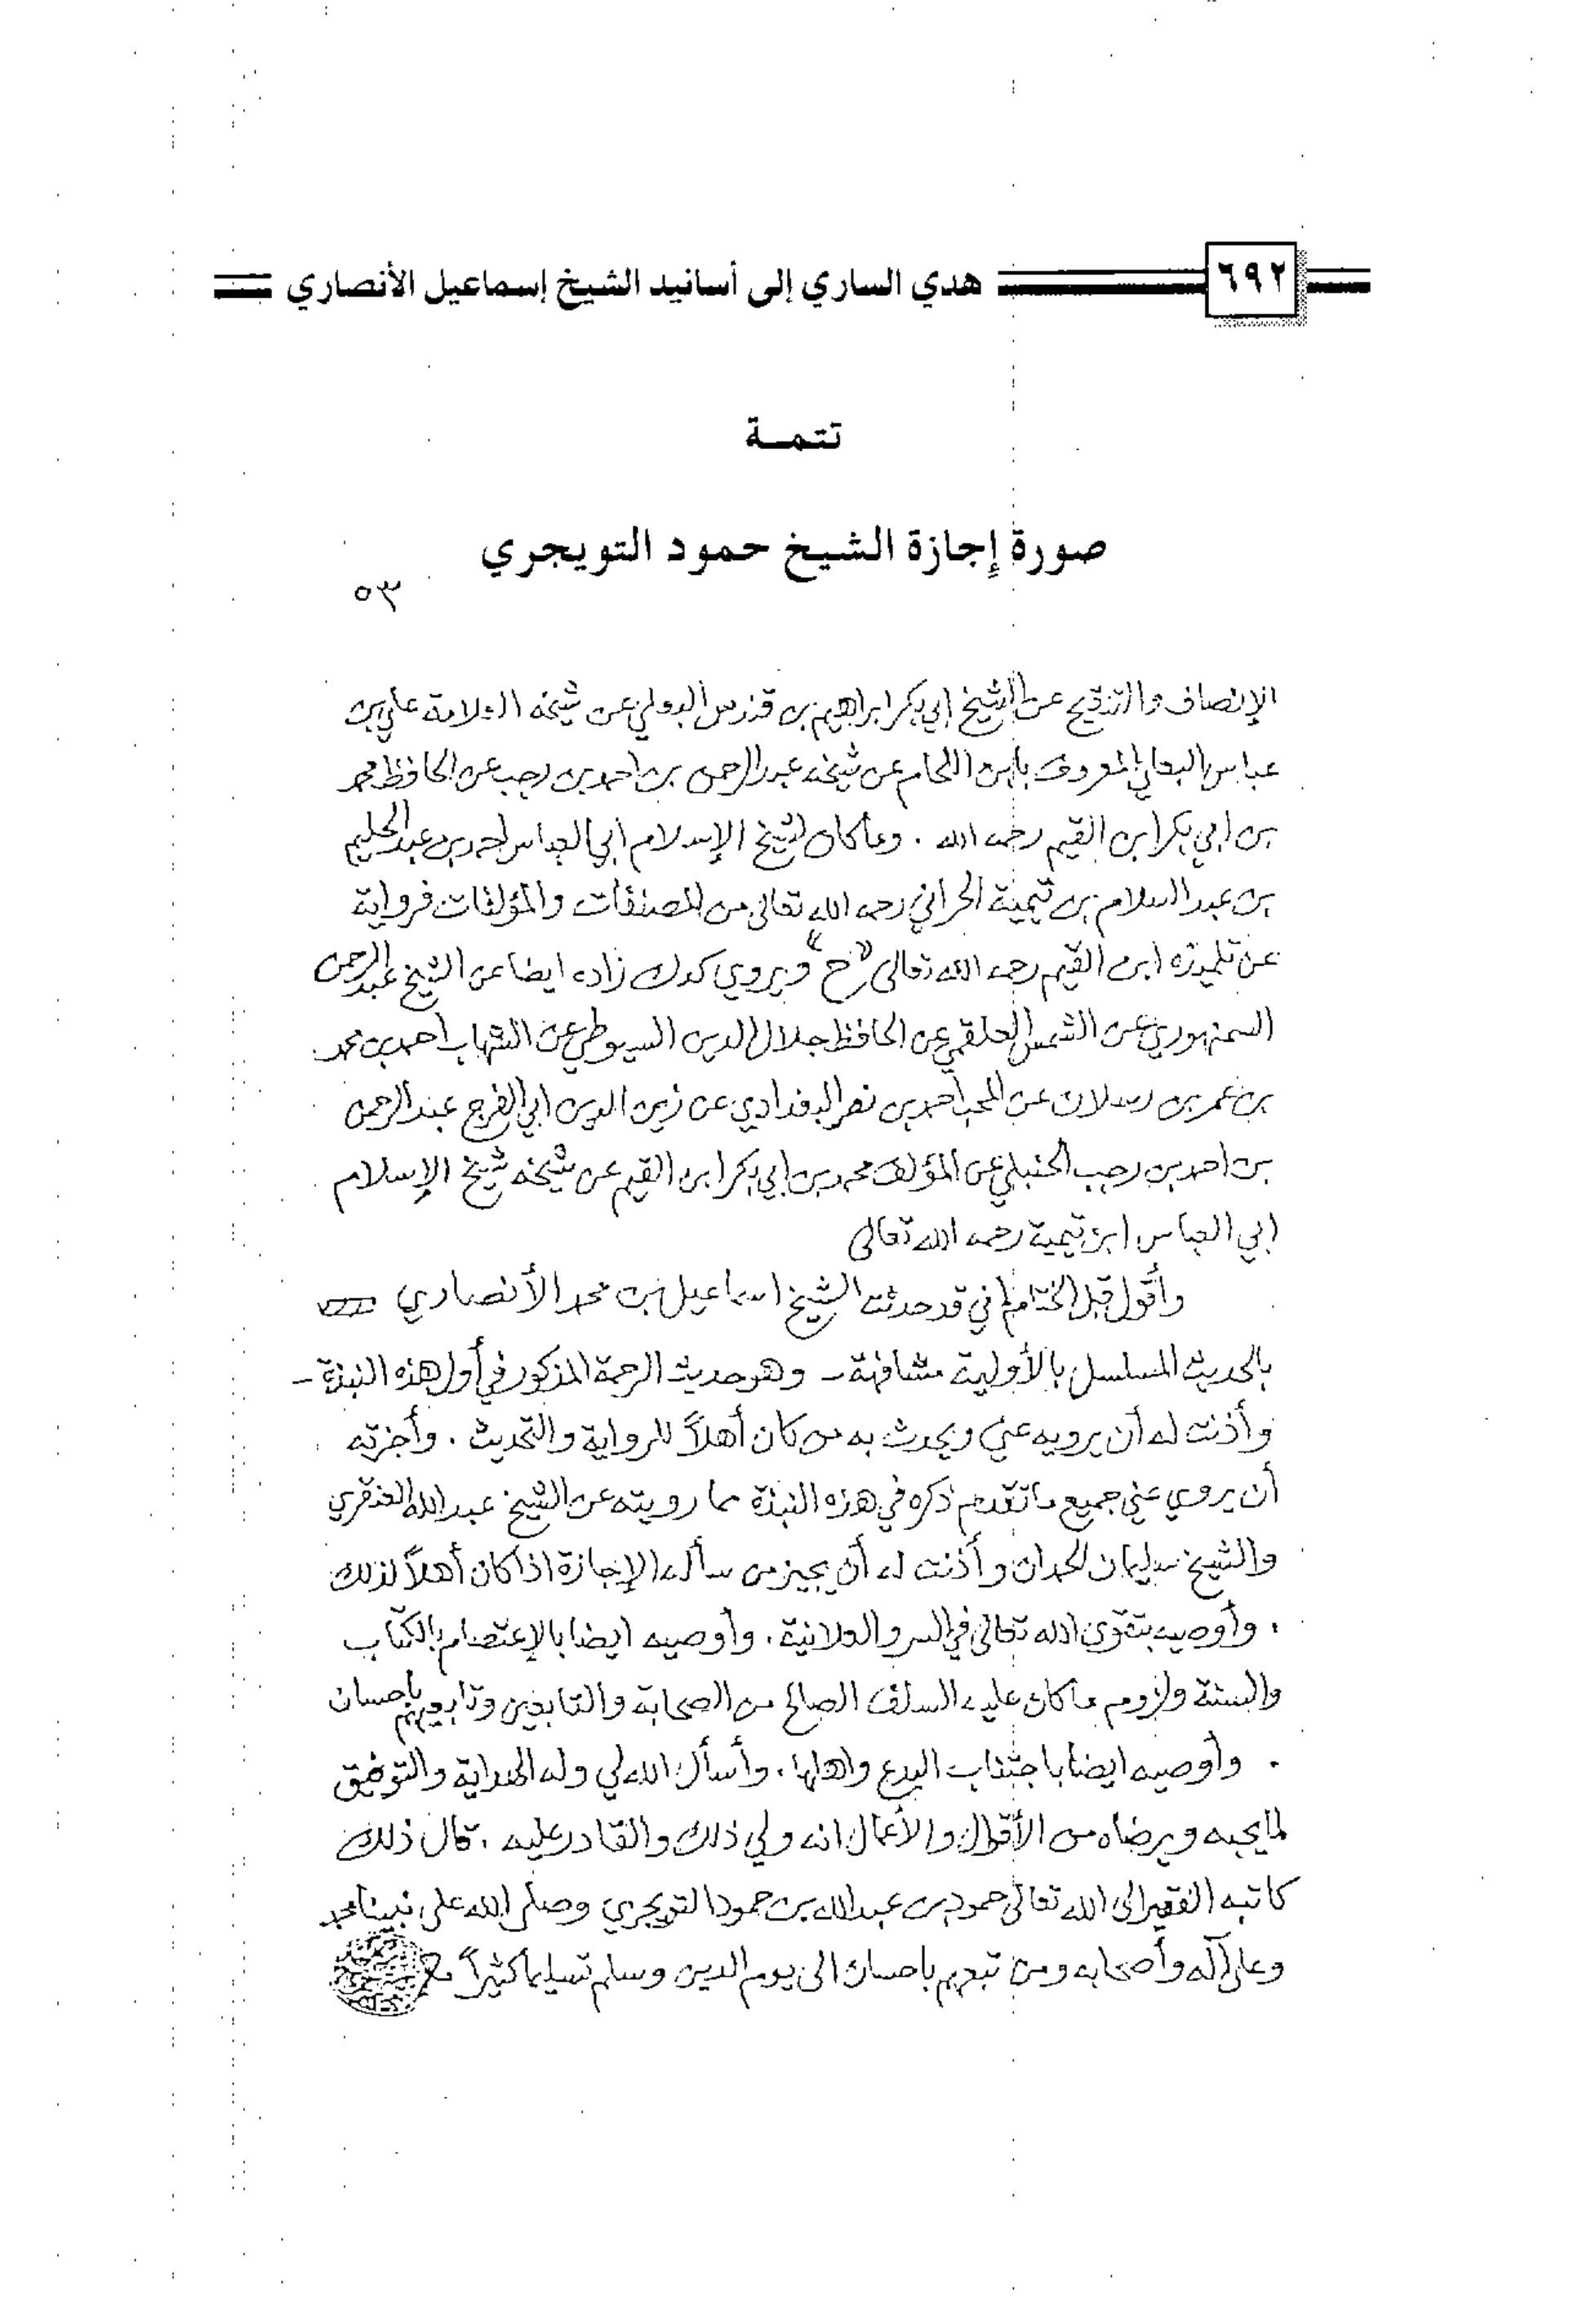 ٦٩٢ هدي الساري إلى أسانيد الشيخ إسماعيل الأنصاري
تتمـة
صورة إجازة الشيخ حمود التويجري
٥٣
الإنصاف والتنقيح عن الشيخ ابي بكر ابراهيم بن قندس البعلي عن شيخه العلامة علي بن
عباس البعلي المعروف بابن اللحام عن شيخه عبد الرحمن بن احمد بن رجب عن الحافظ محمد
بن ابي بكر ابن القيم رحمه الله . وما كان لشيخ الإسلام ابي العباس احمد بن عبد الحليم
بن عبد السلام بن تيمية الحراني رحمه الله تعالى من المصنفات والمؤلفات فرواية
عن تلميذه ابن القيم رحمه الله تعالى «ح» ويروي كدك زاده ايضا عن الشيخ عبد الرحمن
السمنهوري عن الشمس العلقمي عن الحافظ جلال الدين السيوطي عن الشهاب احمد بن محمد
بن عمر بن رسلان عن المحب احمد بن نصر البغدادي عن زين الدين ابي الفرج عبد الرحمن
بن احمد بن رجب الحنبلي عن المؤلف محمد بن ابي بكر ابن القيم عن شيخه شيخ الإسلام
ابي العباس ابن تيمية رحمه الله تعالى
وأقول قبل الختام اني قد حدثت الشيخ اسماعيل بن محمد الأنصاري
بالحديث المسلسل بالأولية مشافهة - وهو حديث الرحمة المذكور في أول هذه النبذة -
وأذنت له أن يرويه عني ويحدث به من كان أهلاً للرواية والتحديث . وأجزته
أن يروي عني جميع ما تقدم ذكره في هذه النبذة مما رويته عن الشيخ عبد الله العنقري
والشيخ سليمان الحمدان وأذنت له أن يجيز من سأله الإجازة اذا كان أهلاً لذلك
. وأوصيه بتقوى الله تعالى في السر والعلانية . وأوصيه ايضا بالإعتصام بالكتاب
والسنة ولزوم ما كان عليه السلف الصالح من الصحابة والتابعين وتابعيهم بإحسان
. وأوصيه ايضا باجتناب البدع واهلها . وأسأل الله لي وله الهداية والتوفيق
لما يحبه ويرضاه من الأقوال والأعمال انه ولي ذلك والقادر عليه . قال ذلك
كاتبه الفقير الى الله تعالى حمود بن عبد الله بن حمود التويجري وصلى الله على نبينا محمد
وعلى آله وأصحابه ومن تبعهم باحسان الى يوم الدين وسلم تسليما كثيراً